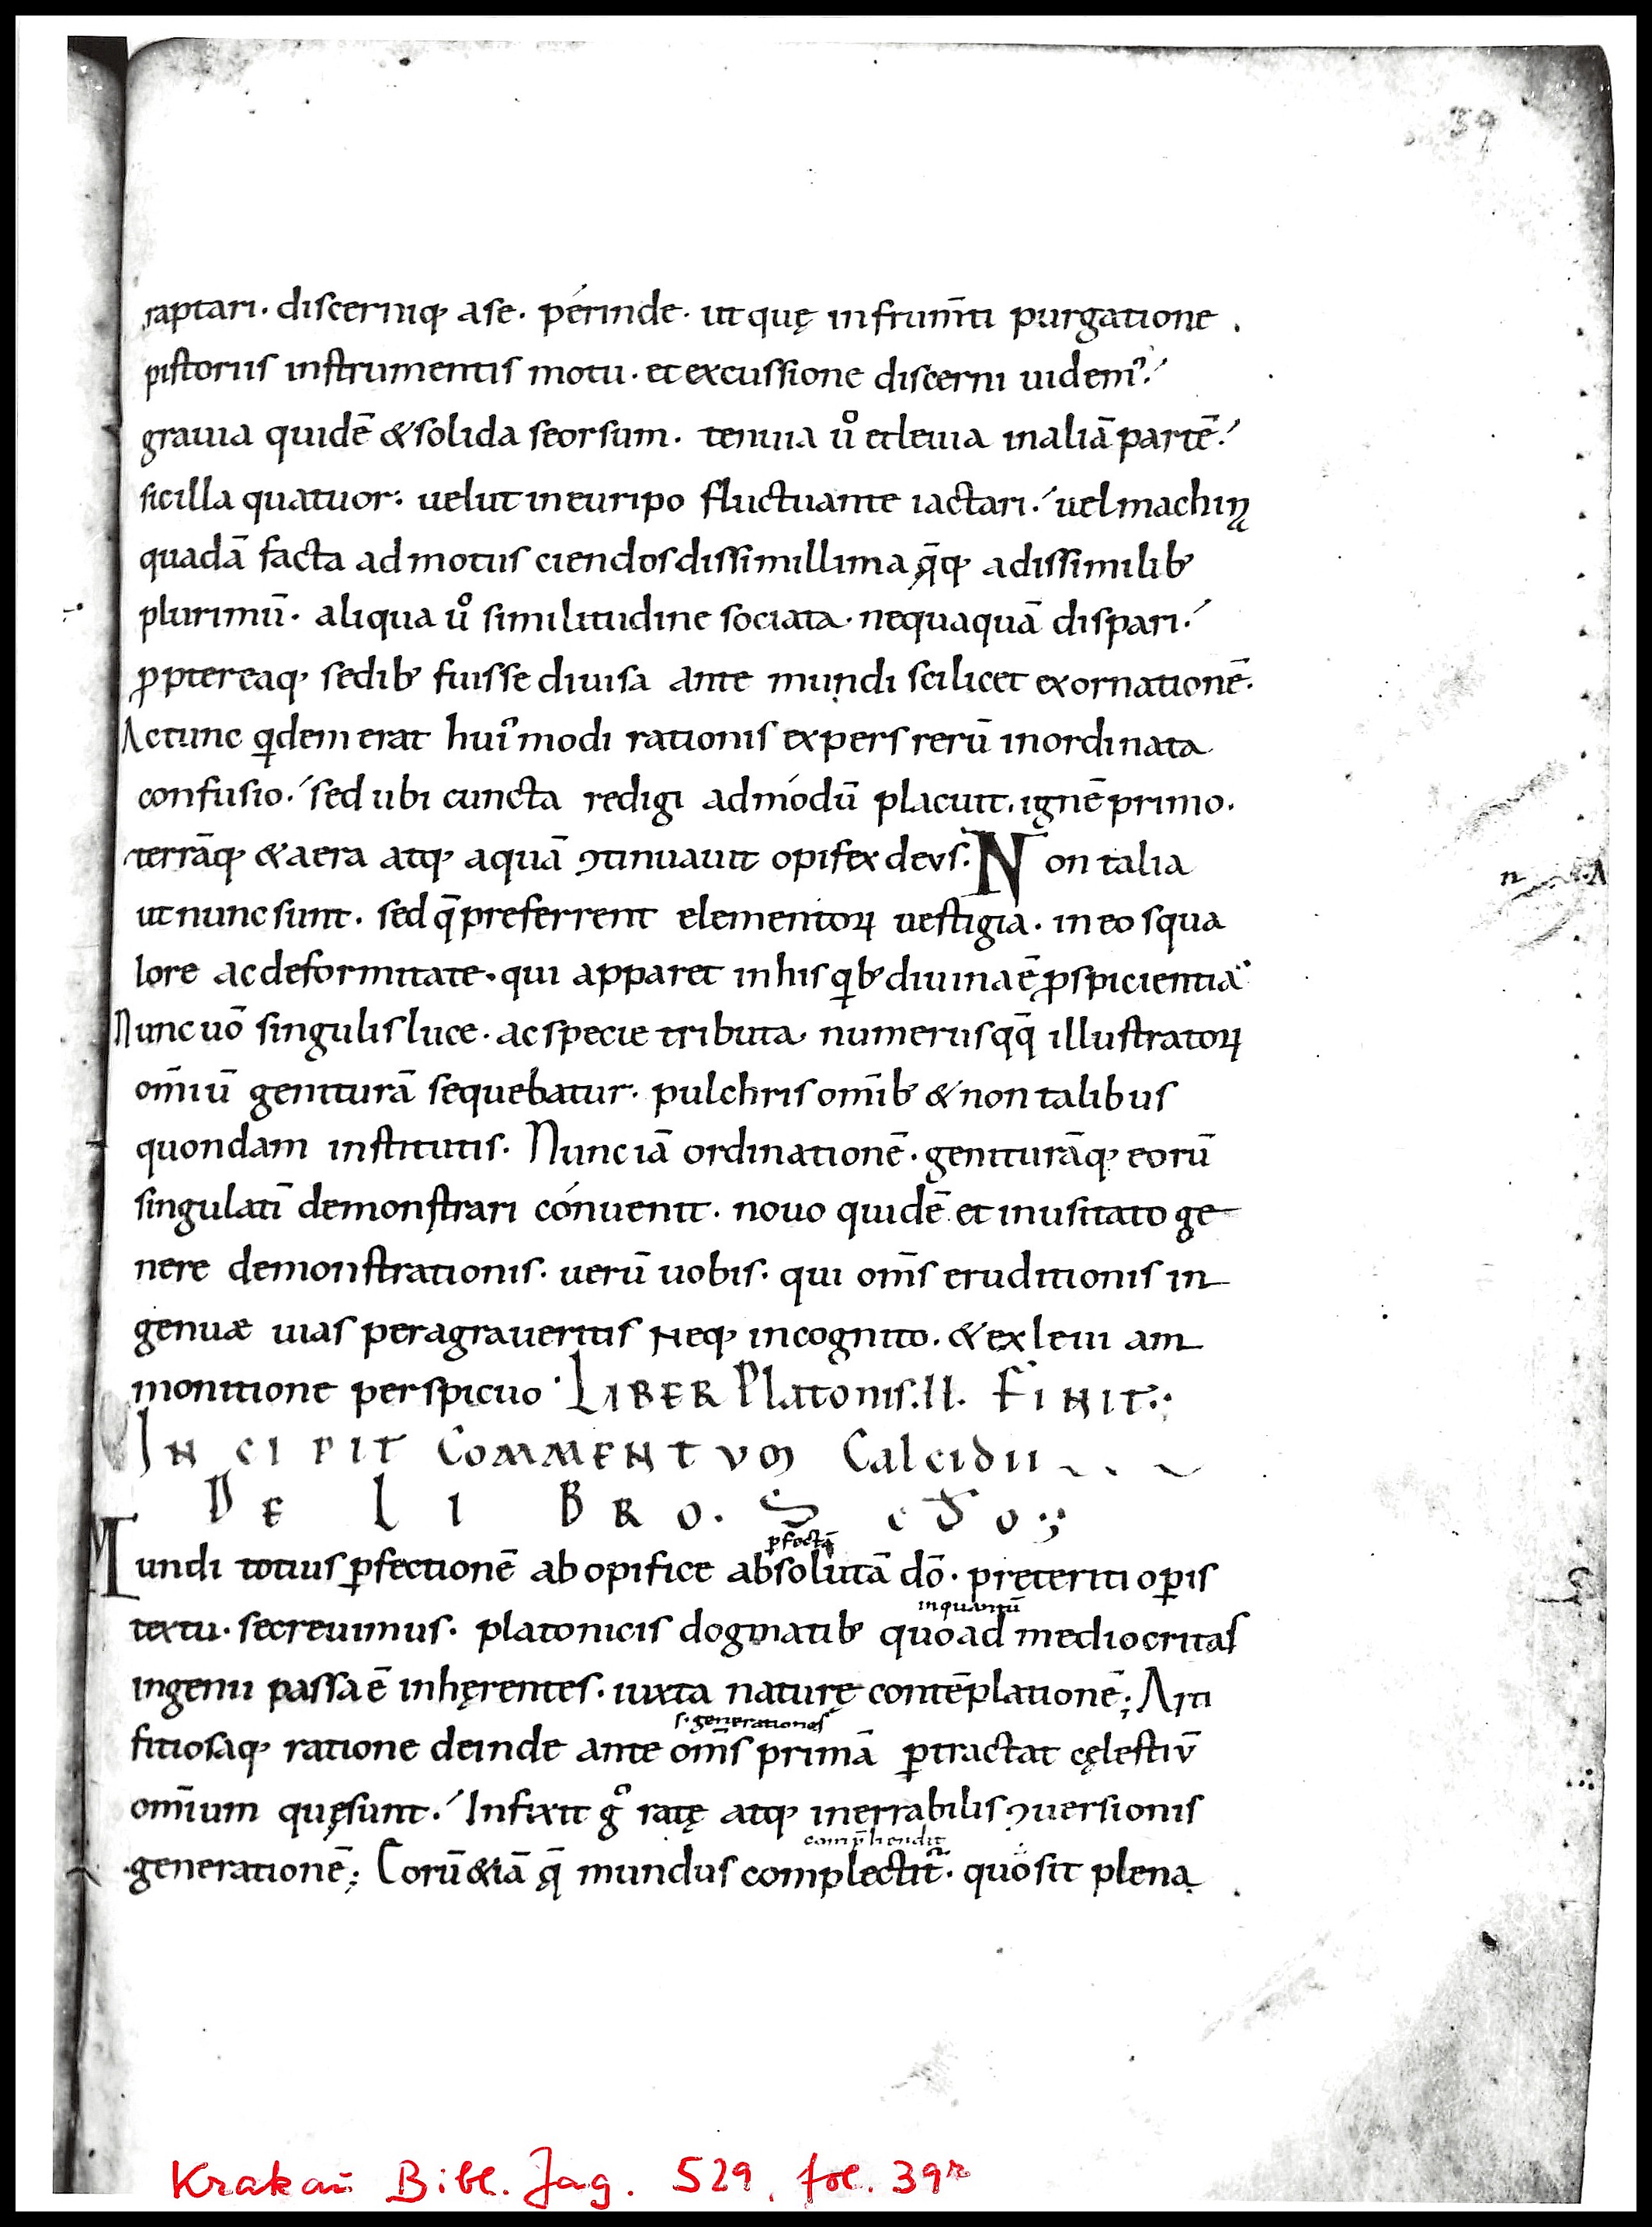 39
raptari. discerniq; a se. perinde. ut quę in frum̄ti purgatione.
pistoriis instrumentis motu. et excussione discerni uidem᷒.
grauia quidē & solida seorsum. tenuia ů et leuia in aliā partē.
sic illa quatuor: uelut in euripo fluctuante iactari. uel machinę
quadā facta ad motus ciendos dissimillima q̄q; a dissimilib;
plurimū. aliqua ů similitudine sociata. nequaquā dispari.
ꝓptereaq; sedib; fuisse diuisa ante mundi scilicet exornationē.
Ac tunc qͥdem erat hui᷒modi rationis expers rerū inordinata
confusio. sed ubi cuncta redigi ad módū placuit. ignē primo.
terrāq; & aera atq; aquā ꝯtinuauit opifex deus. Non talia
ut nunc sunt. sed q̄ preferrent elementoꝝ uestigia. in eo squa
lore ac deformitate. qui apparet in his qͥb; diuina ē ꝓspicientia.
Nunc uō singulis luce. ac specie tributa. numerus qq̄ illustratoꝝ
om̄iū geniturā sequebatur. pulchris om̄ib; & non talibus
quondam institutis. Nunc iā ordinationē. geniturāq; eorū
singulatī demonstrari cónuenit. nouo quidē et inusitato ge
nere demonstrationis. uerū uobis. qui om̄s eruditionis in
genuæ uias peragraueritis Neq; incognito. & ex leui am
monitione perspicuo. LIBER Platonis. II. FINIT:
INCIPIT COMMENTUM Calcidii
DE LIBRO. S c đ o.;
pfectā
Mundi totius ꝑfectionē ab opifice absolutā dō. preteriti oꝑis
inquantū
textu. secreuimus. platonicis dogmatib; quoad mediocritas
ingenii passa ē inhęrentes. iuxta naturę contēplationē; Arti
s. generationes
fitiosaq; ratione deinde ante om̄s primā ꝑtractat cęlestiū
om̄ium quę sunt. Infixit gͦ ratę atq; inerrabilis ꝯuersionis
comp̄hendit
generationē; Corū &iā q̄ mundus complectit᷑. quo sit plena
Krakau Bibl. Jag. 529, fol. 39r